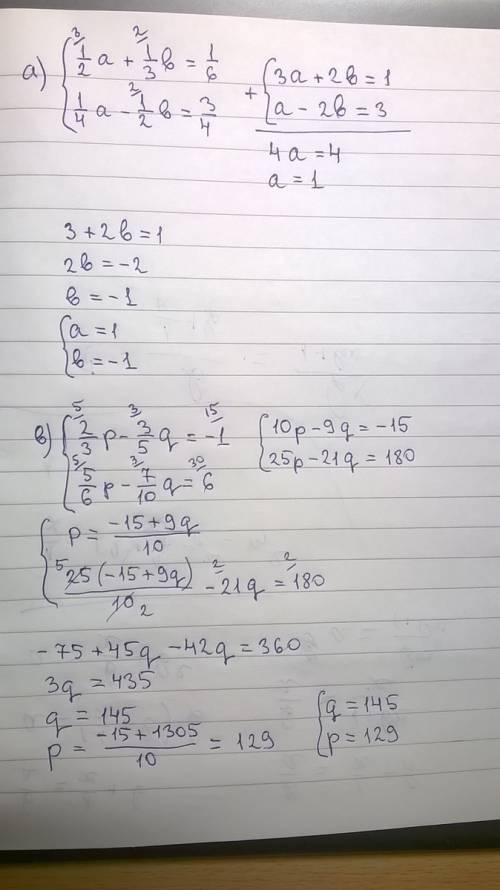 а) { 3/ 1/2 a + 2/ 1/3 b = 1/6
1/4 a - 2/ 1/2 b = 3/4
+ { 3a + 2b = 1
a - 2b = 3
4a = 4
a = 1
3 + 2b = 1
2b = -2
b = -1
{ a = 1
b = -1
в) { 5/ 2/3 p - 3/ 3/5 q = 15/ -1
5/ 5/6 p - 3/ 7/10 q = 30/ 6
{ 10p - 9q = -15
25p - 21q = 180
{ p = (-15 + 9q)/10
5 25(-15 + 9q)/10 2 - 2/ 21q = 2/ 180
-75 + 45q - 42q = 360
3q = 435
q = 145
p = (-15 + 1305)/10 = 129
{ q = 145
p = 129